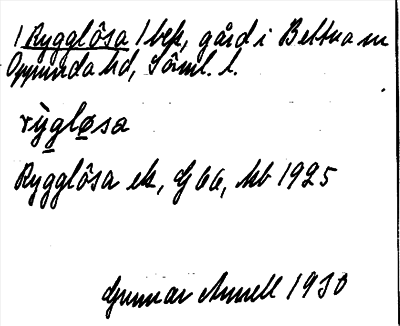 1 Rygglösa 1 bek, gård i Bettna sn
Oppunda hd, Söml. l.
rỳgløsa
Rygglösa ek, G 66, kb 1925
Gunnar Annell 1930